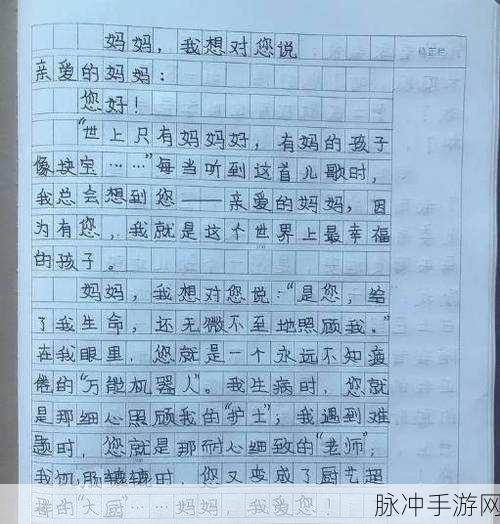 妈妈，我想对您说
亲爱的妈妈：
您好！
“世上只有妈妈好，有妈的孩子
像块宝……”每当听到这首儿歌时，
我总会想到您——亲爱的妈妈，因
为有您，我就是这个世界上最幸福
的孩子。
妈妈，我想对您说：“是您，给
了我生命，还无微不至地照顾我。”
在我眼里，您就是一个永远不知疲
倦的“万能机器人”。我生病时，您就
是那细心照顾我的“护士”；我遇到难
题时，您就是那耐心细致的“老师”；
我饥肠辘辘时，您又变成了厨艺超
群的“大厨”……妈妈，我爱您！
脉冲手游网